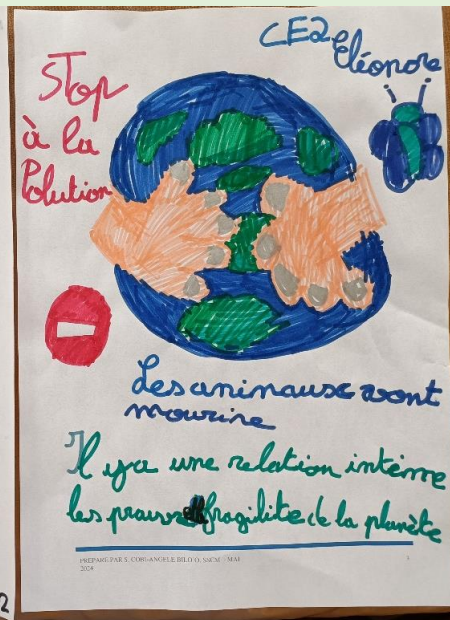 CE2 Eléonore
STop
à la
Polution
Les aninause vont
mourire
Il y a une relation intème
les prauvre fragilite de la planète
PREPARE PAR S. COBI-ANGELE BILO'O, SSCM / MAI
2024
1
2